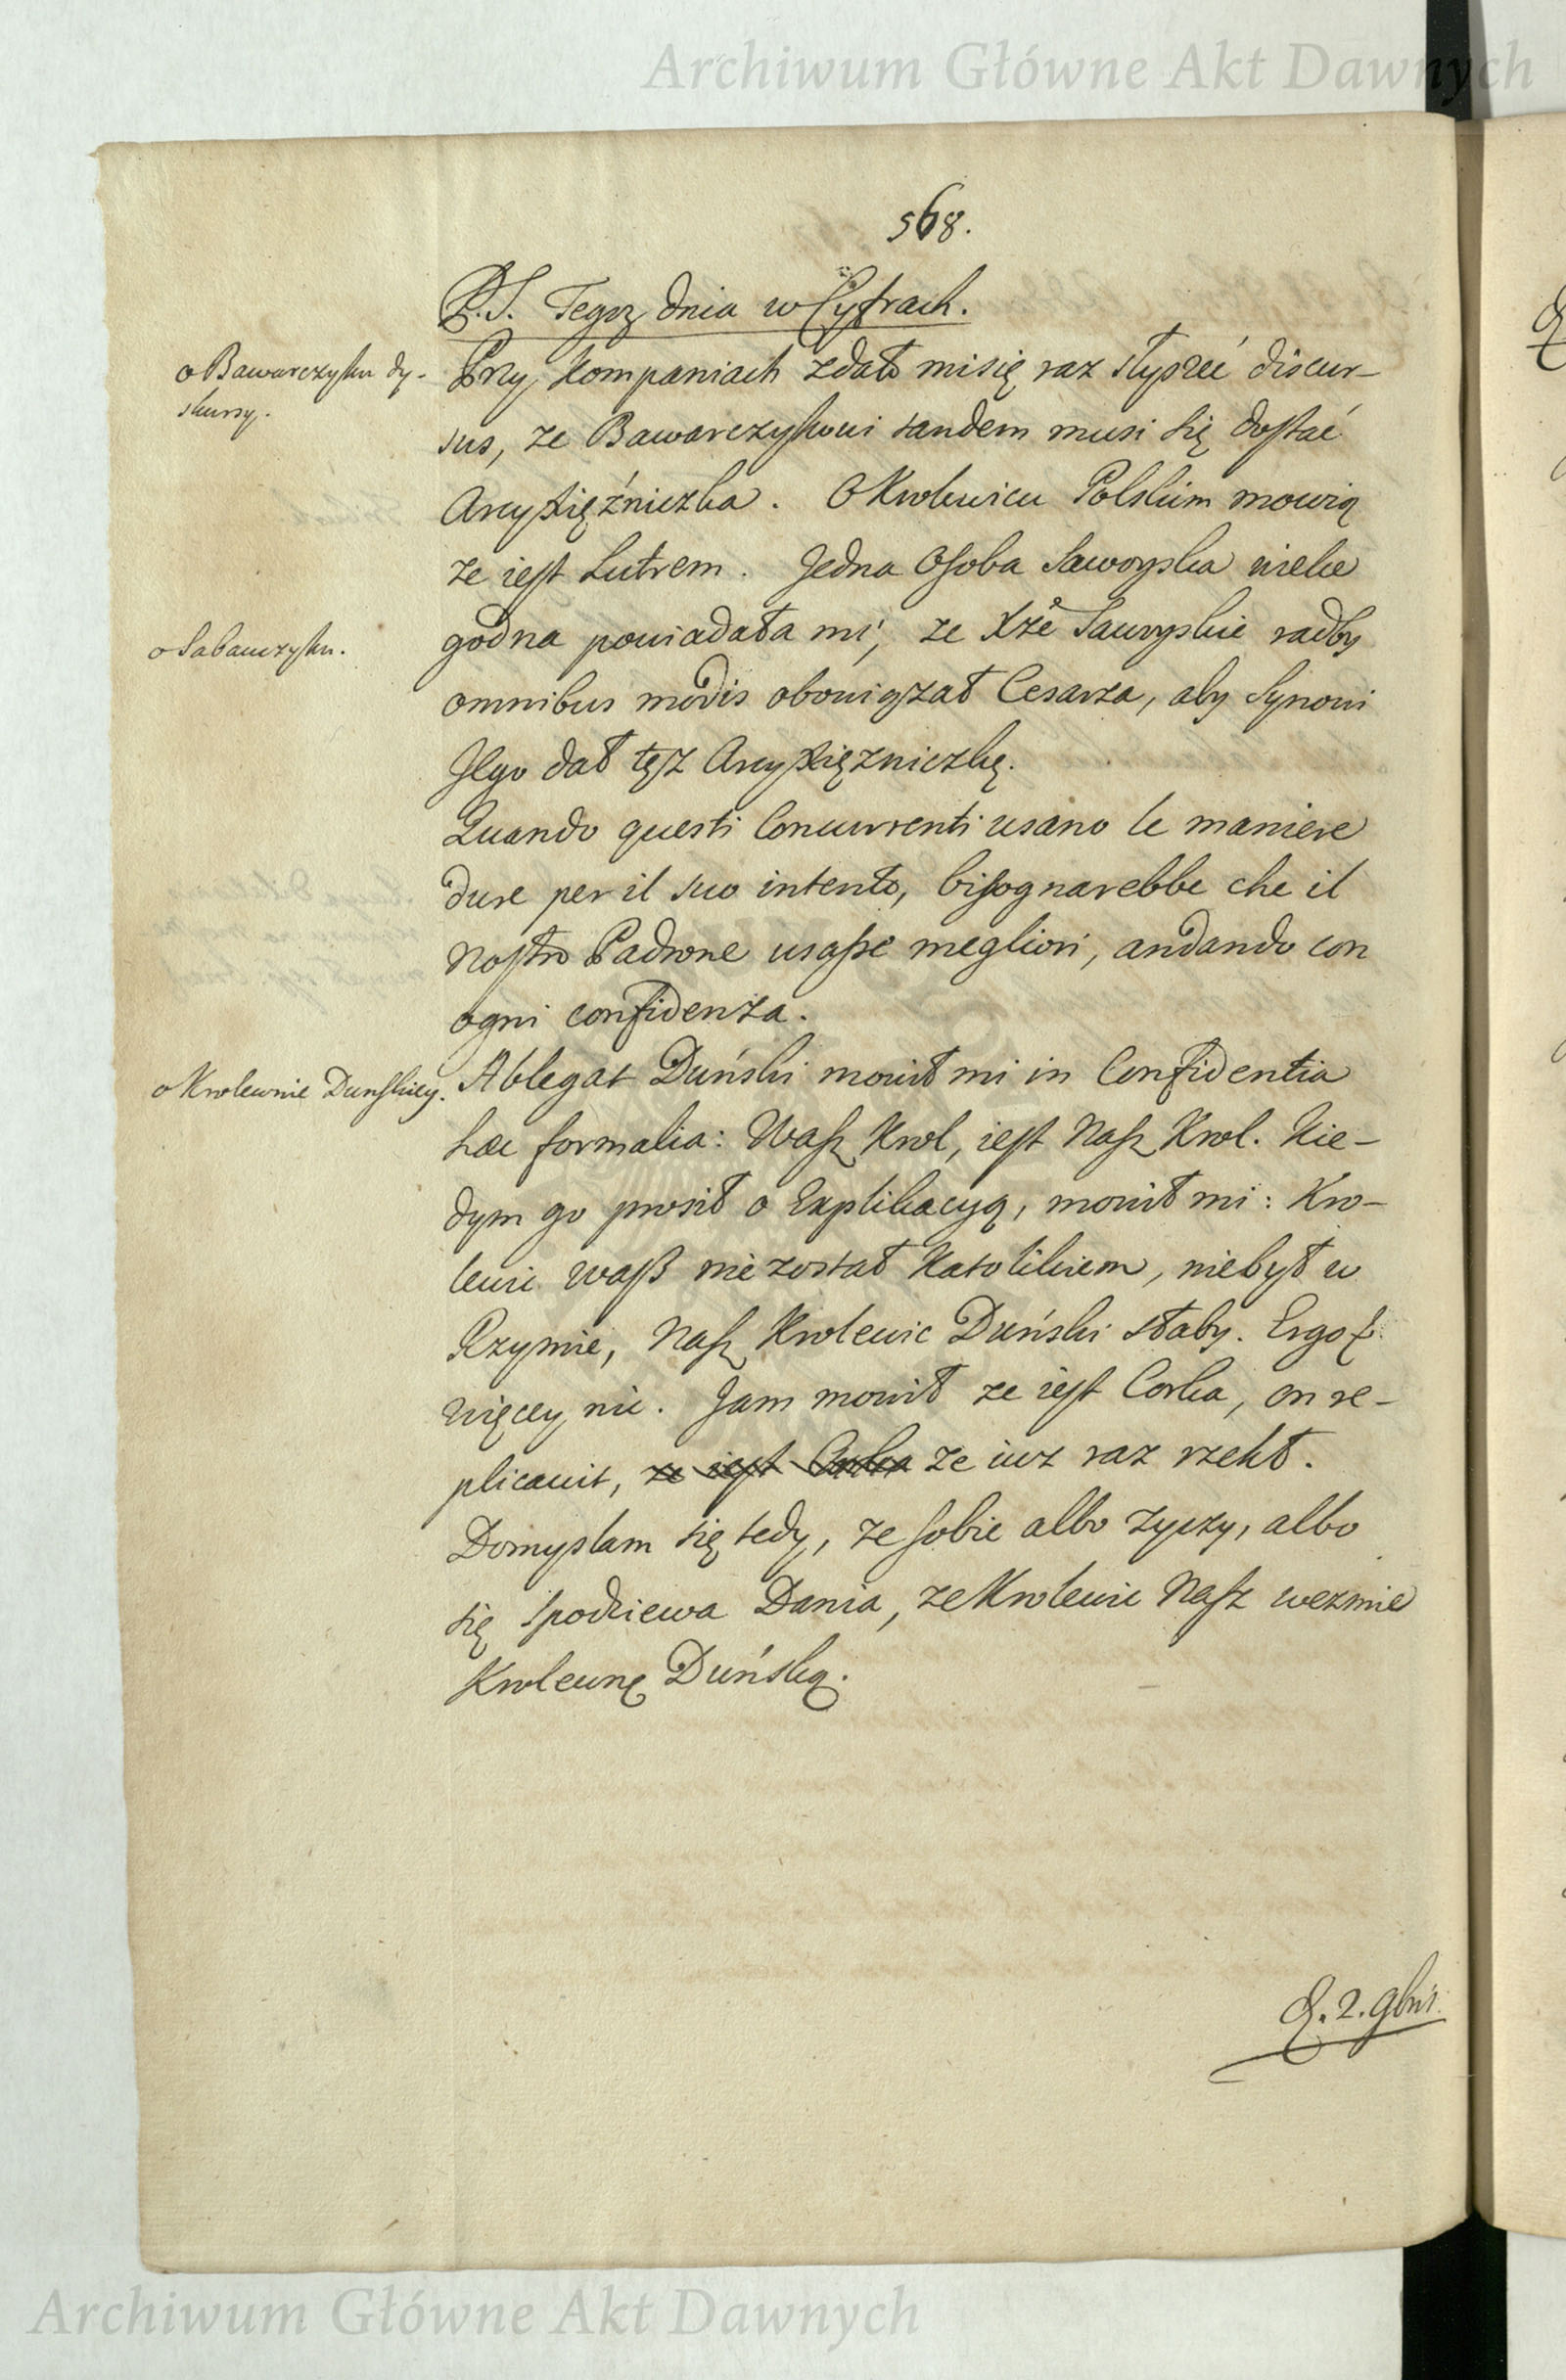 Archiwum Główne Akt Dawnych
568.
P.S. Tegoz dnia w Cyfrach.
o Bawarczyku dy-
skursy.
Przy kompaniach zdało misię raz słyszeć discur-
sus, ze Bawarczykowi tandem musi się dostać
Arcyxiężniczka. O Krolewicu Polskim mowią
ze iest Lutrem. Jedna Osoba Sawoyska wielce
o Sabauczyku.
godna powiadała mi, ze Xże Sawoyskie radby
omnibus modis obowiązał Cesarza, aby Synowi
Jego dał tęsz Arcyxiężniczkę.
Quando questi Concurrenti usano le maniere
dure per il suo intento, bisognarebbe che il
Nostro Padrone usasse megliori, andando con
ogni confidenza.
o Krolewnie Dunskiey.
Ablegat Duński mowił mi in Confidentia
hæc formalia: Wasz Krol, iest Nasz Krol. Kie-
dym go prosił o Explikacyą, mowił mi: Kro-
lewic wasz nie został Katolikiem, niebył w
Rzymie, Nasz Krolewic Duński słaby. Ergo
więcey nic. Jam mowił ze iest Corka, on re-
plicavit, ze iest Corka ze iuz raz rzekł.
Domyslam się tedy, ze sobie albo zyczy, albo
się spodziewa Dania, ze Krolewic Nasz wezmie
Krolewnę Duńską.
2. 9bris
Archiwum Główne Akt Dawnych